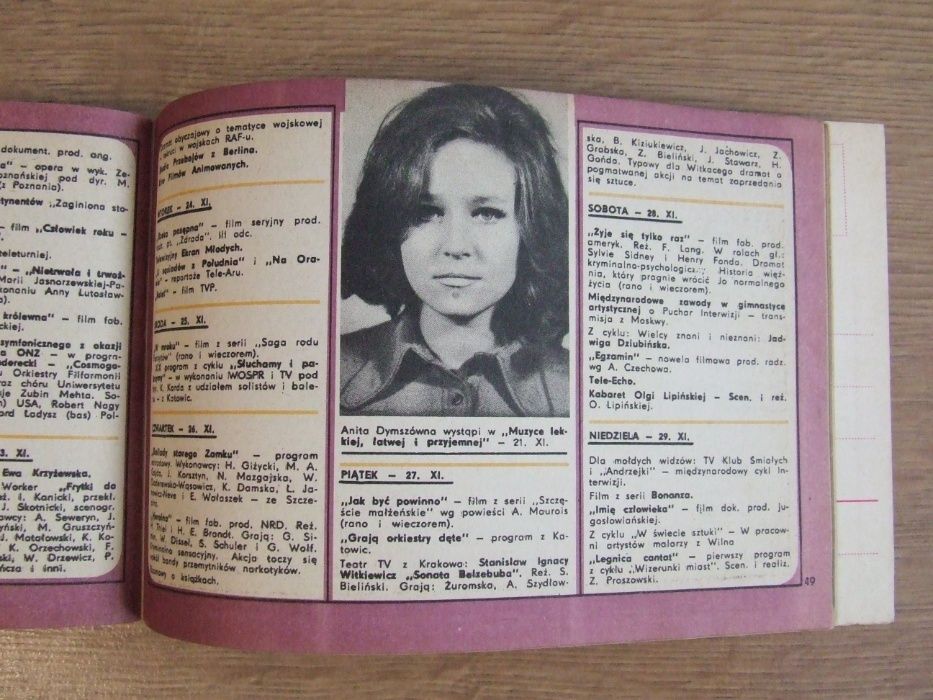 dokument. prod. ang.
opera w wyk. Ze-
poznańskiej pod dyr. M.
(z Poznania).
„Zaginiona sto-
film „Człowiek roku –
teleturniej.
„Nietrwała i trwoż-
Marii Jasnorzewskiej-Pa-
Anny Lutosław-
królewna" – film fab.
symfonicznego z okazji
ONZ – w progra-
„Cosmogo-
Orkiestry Filharmonii
oraz chóru Uniwersytetu
Zubin Mehta. So-
USA, Robert Nagy
Ładysz (bas) Pol-
3. XI.
Ewa Krzyżewska.
Worker „Frytki do
I. Kanicki, przekł.
J. Skotnicki, scenogr.
A. Seweryn, J.
M. Gruszczyń-
J. Matałowski, K. Ko-
K. Orzechowski, F.
W. Orzewicz, P.
i inni.
obyczajowy o tematyce wojskowej
w wojskach RAF-u.
Przebojów z Berlina.
Filmów Animowanych.
WTOREK – 24. XI.
posępna" – film seryjny prod.
p. „Zdrada". III odc.
Telewizyjny Ekran Młodych.
sąsiadów z Południa" i „Na Ora-
– reportaże Tele-Aru.
– film TVP.
ŚRODA – 25. XI.
mroku" – film z serii „Saga rodu
(rano i wieczorem).
XX program z cyklu „Słuchamy i pa-
– w wykonaniu WOSPR i TV pod
dyr. K. Korda z udziałem solistów i bale-
– z Katowic.
CZWARTEK – 26. XI.
starego Zamku" – program
Wykonawcy: H. Giżycki, M. A.
J. Korsztyn, N. Mazgajska, W.
K. Damska, L. Ja-
i E. Wałaszek – ze Szcze-
– film fab. prod. NRD. Reż.
H. Thiel i H. E. Brandt. Grają: G. Si-
W. Dissel, S. Schuler i G. Wolf.
sensacyjny. Akcja toczy się
bandy przemytników narkotyków.
o książkach.
Anita Dymszówna wystąpi w „Muzyce lek-
kiej, łatwej i przyjemnej" – 21. XI.
PIĄTEK – 27. XI.
„Jak być powinno" – film z serii „Szczę-
ście małżeńskie" wg powieści A. Maurois
(rano i wieczorem).
„Grają orkiestry dęte" – program z Ka-
towic.
Teatr TV z Krakowa: Stanisław Ignacy
Witkiewicz „Sonata Belzebuba". Reż. S.
Bieliński. Grają: Żuromska, A. Szydłow-
ska, B. Kiziukiewicz, J. Jachowicz, Z.
Grabska, Z. Bieliński, J. Stawarz, H.
Gońda. Typowy dla Witkacego dramat o
pogmatwanej akcji na temat zaprzedania
się sztuce.
SOBOTA – 28. XI.
„Żyje się tylko raz" – film fab. prod.
ameryk. Reż. F. Lang. W rolach gł.:
Sylvie Sidney i Henry Fonda. Dramat
kryminalno-psychologiczny. Historia więź-
nia, który pragnie wrócić do normalnego
życia (rano i wieczorem).
Międzynarodowe zawody w gimnastyce
artystycznej o Puchar Interwizji – trans-
misja z Moskwy.
Z cyklu: Wielcy znani i nieznani: Jad-
wiga Dziubińska.
„Egzamin" – nowela filmowa prod. radz.
wg A. Czechowa.
Tele-Echo.
Kabaret Olgi Lipińskiej – Scen. i reż.
O. Lipińskiej.
NIEDZIELA – 29. XI.
Dla mołdych widzów: TV Klub Śmiałych
i „Andrzejki" – międzynarodowy cykl In-
terwizji.
Film z serii Bonanza.
„Imię człowieka" – film dok. prod. ju-
gosłowiańskiej.
Z cyklu „W świecie sztuki" – W pracow-
ni artystów malarzy z Wilna
„Legnica cantat" – pierwszy program
z cyklu „Wizerunki miast". Scen. i realiz.
Z. Proszowski.
49